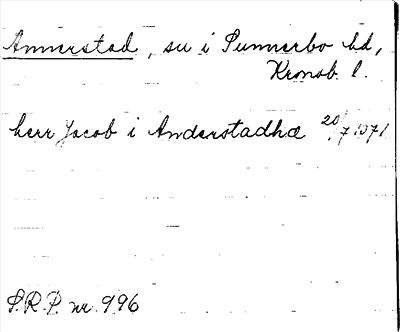 Annerstad, sn i Sunnerbo hd,
Kronob. l.
herr Jacob i Anderstadhæ 20/7 1371
S.R.P. nr. 996